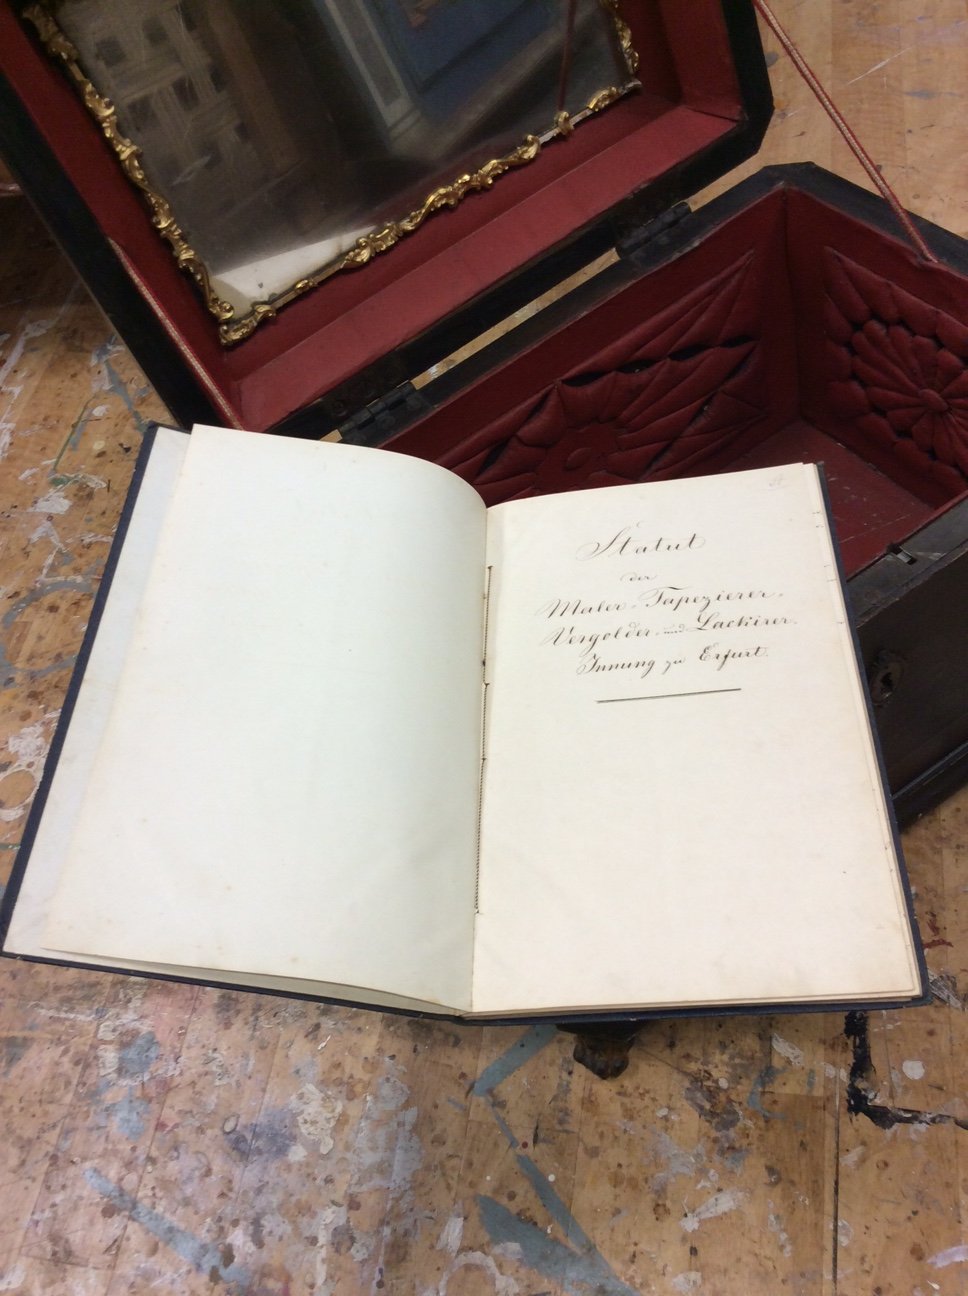 Statut
der
Maler-, Tapezierer-
Vergolder- und Lackirer-
Innung zu Erfurt.